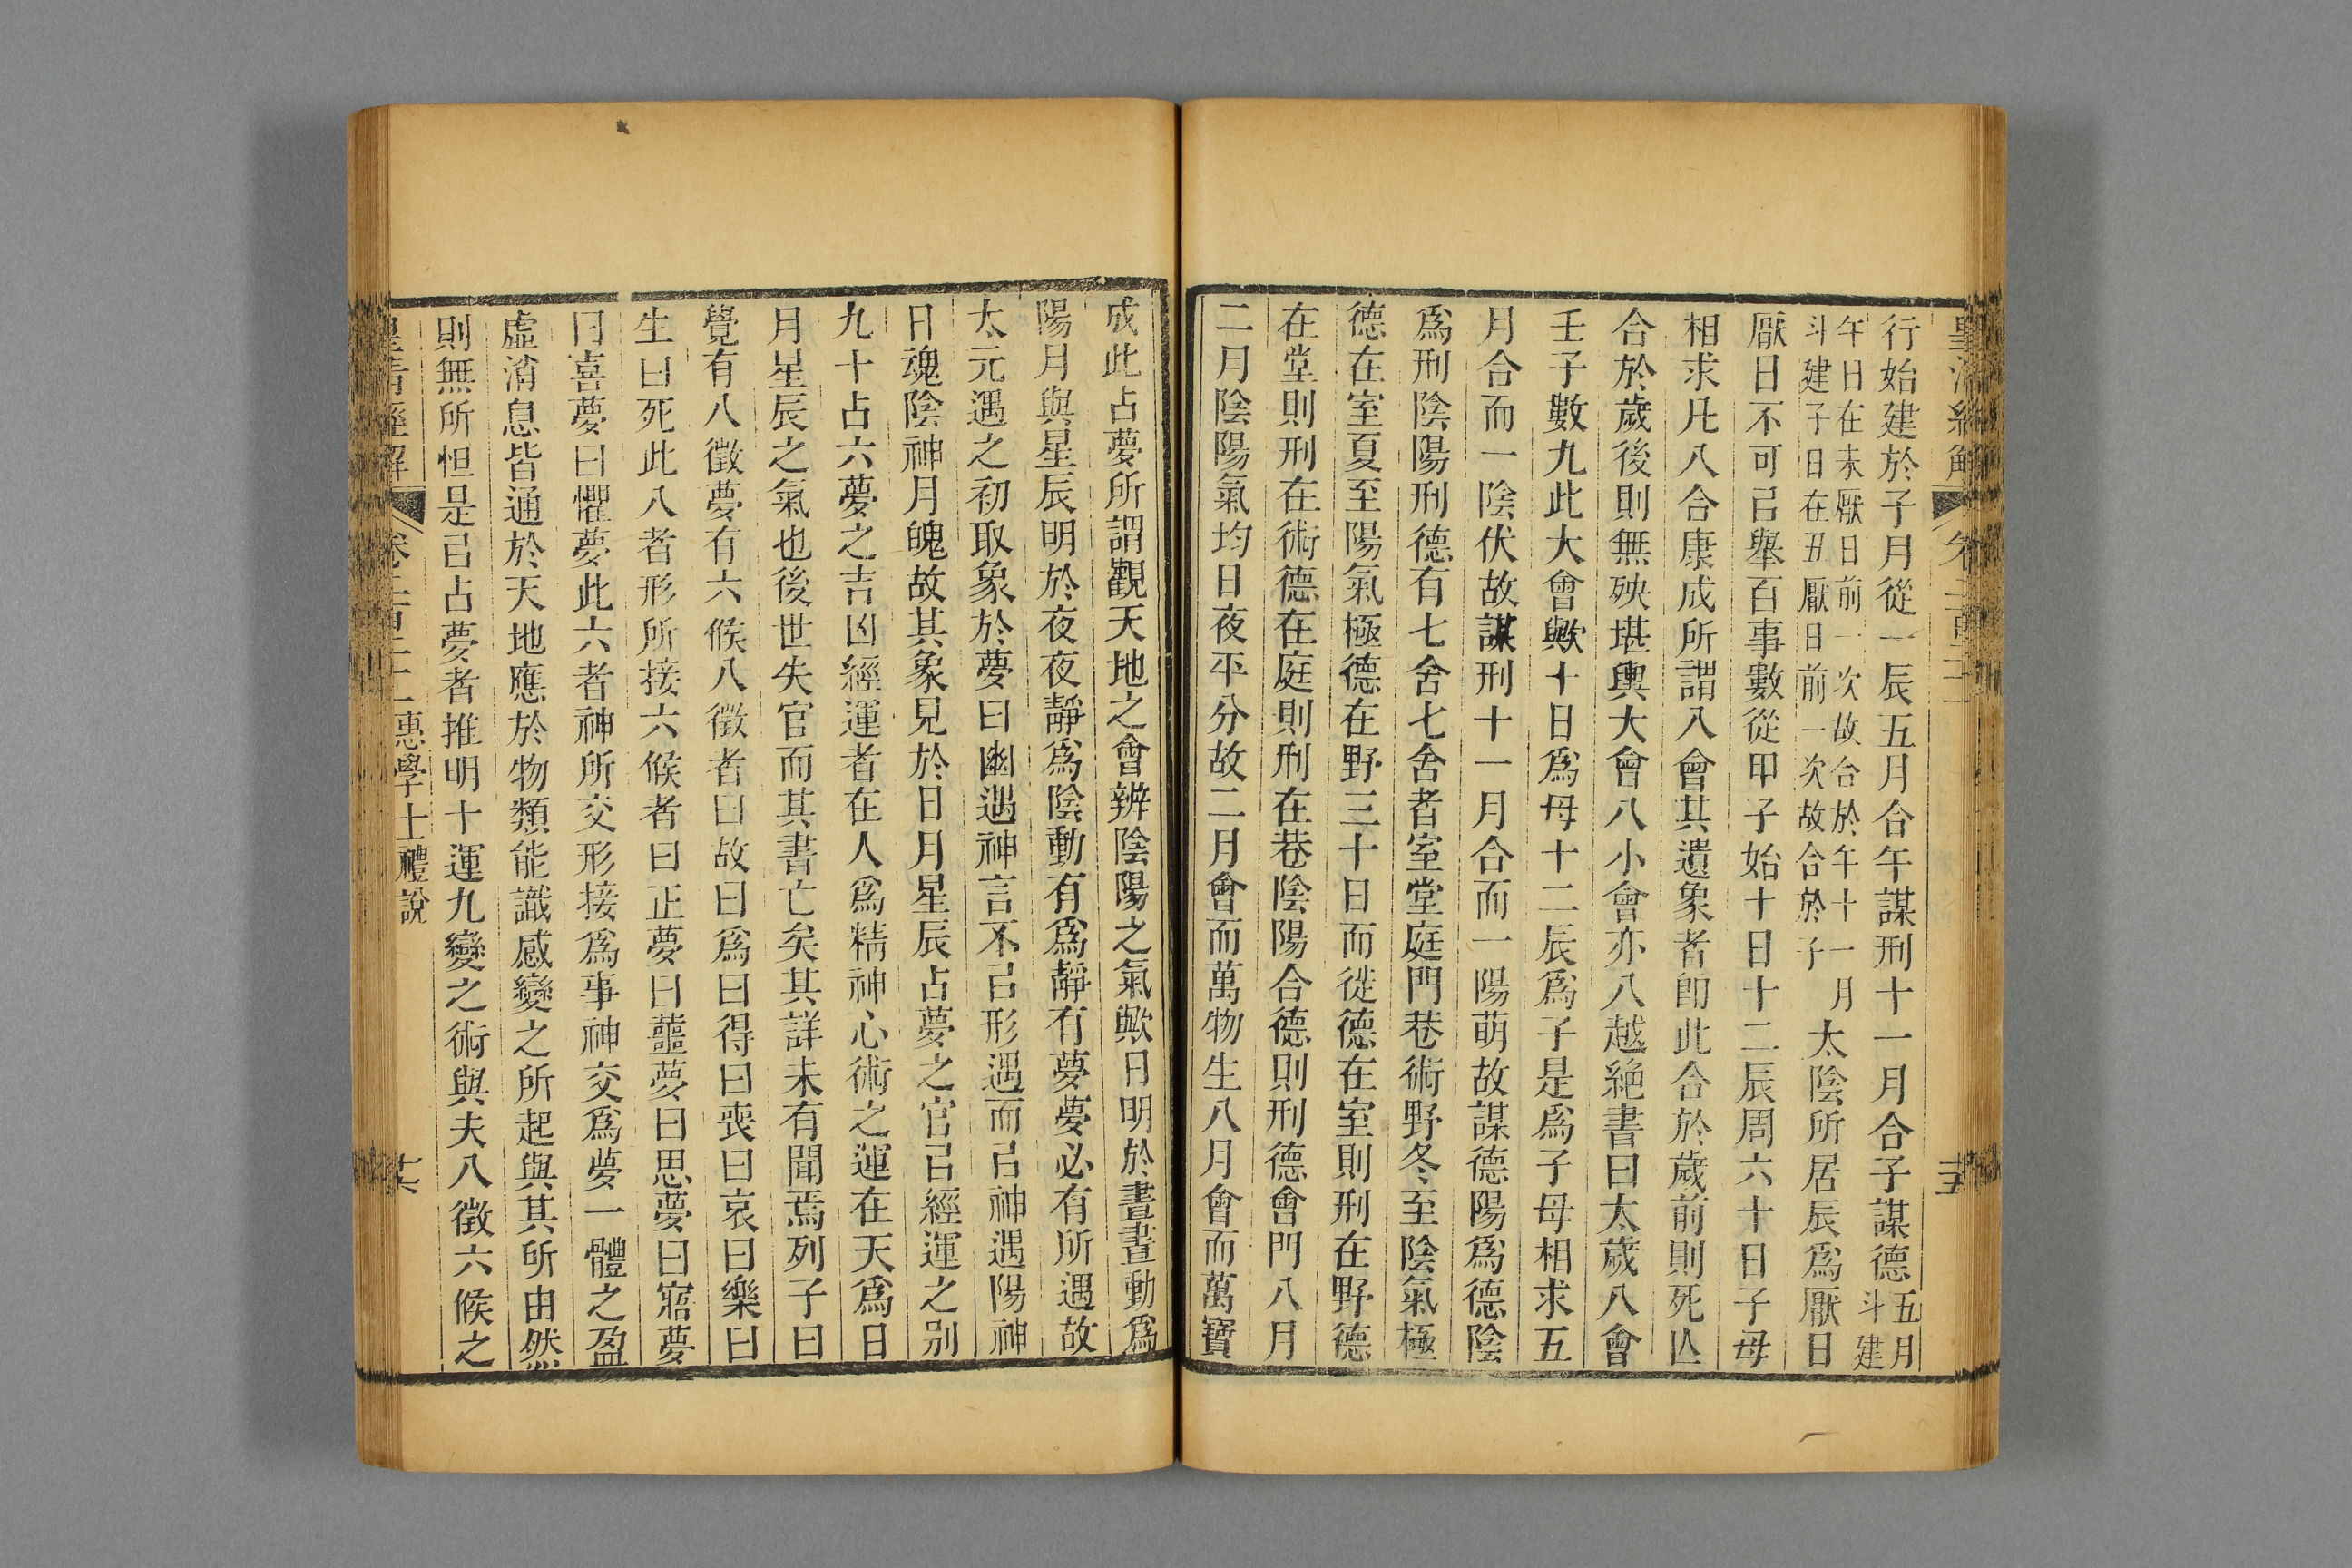 行始建於子月從一辰五月合午謀刑十一月合子謀德五月斗建
午日在未厭日前一次故合於午十一月
斗建子日在丑厭日前一次故合於子
太陰所居辰爲厭日
厭日不可㠯舉百事數從甲子始十日十二辰周六十日子母
相求凡八合康成所謂八會其遺象者卽此合於歲前則死亾
合於歲後則無殃堪輿大會八小會亦八越絶書曰太歲八會
壬子數九此大會歟十日爲母十二辰爲子是爲子母相求五
月合而一陰伏故謀刑十一月合而一陽萌故謀德陽爲德陰
爲刑陰陽刑德有七舍七舍者室堂庭門巷術野冬至陰氣極
德在室夏至陽氣極德在野三十日而徙德在室則刑在野德
在堂則刑在術德在庭則刑在巷陰陽合德則刑德會門八月
二月陰陽氣均日夜平分故二月會而萬物生八月會而萬寶
成此占夢所謂觀天地之會辨陰陽之氣歟日明於晝晝動爲
陽月與星辰明於夜夜靜爲陰動有爲靜有夢夢必有所遇故
太元遇之初取象於夢曰幽遇神言不㠯形遇而㠯神遇陽神
日魂陰神月魄故其象見於日月星辰占夢之官㠯經運之别
九十占六夢之吉凶經運者在人爲精神心術之運在天爲日
月星辰之氣也後世失官而其書亡矣其詳未有聞焉列子曰
覺有八徵夢有六候八徵者曰故曰爲曰得曰喪曰哀曰樂曰
生曰死此八者形所接六候者曰正夢曰蘁夢曰思夢曰寤夢
曰喜夢曰懼夢此六者神所交形接爲事神交爲夢一體之盈
虛消息皆通於天地應於物類能識感變之所起與其所由然
則無所怛是㠯占夢者推明十運九變之術與夫八徵六候之
皇清經解
惠學士禮說